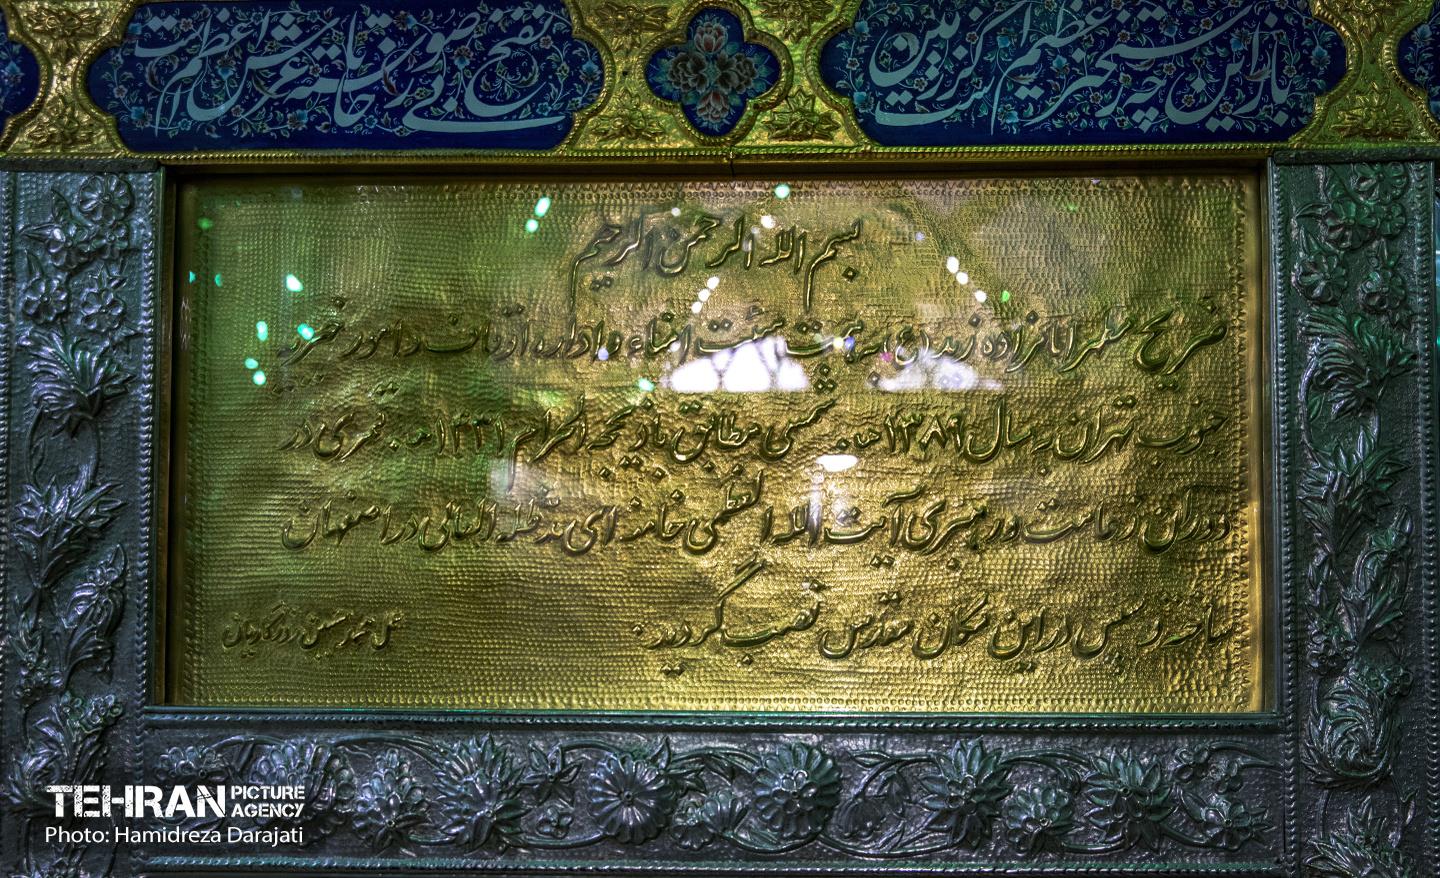 باز این چه رستخیز عظیم است کز زمین
بی نفخ صور خاسته تا عرش اعظم است
بسم الله الرحمن الرحیم
ضریح مطهر امامزاده زید (ع) به همت هیئت امناء و اداره اوقاف و امور خیریه
جنوب تهران به سال ۱۳۸۹ ه‍ . شمسی مطابق با ذیحجه الحرام ۱۴۳۱ ه‍ . قمری در
دوران زعامت و رهبری آیت الله العظمی خامنه ای مدظله العالی در اصفهان
ساخته و سپس در این مکان مقدس نصب گردید.
عمل محمد حسین
TEHRAN PICTURE AGENCY
Photo: Hamidreza Darajati